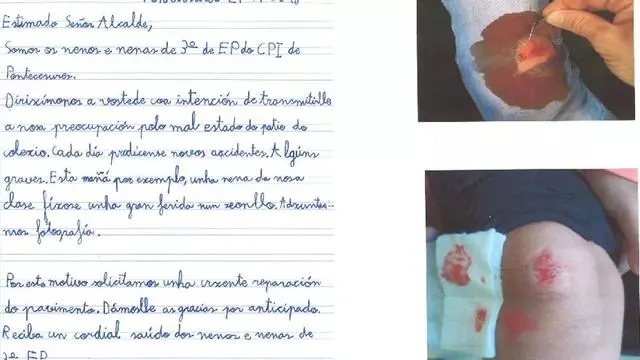 Estimado Señor Alcalde,
Somos os nenos e nenas de 3º de EP do CPI de
Pontecesures.
Dirixímonos a vostede coa intención de transmitirlle
a nosa preocupación polo mal estado do patio do
colexio. Cada día prodúcense novos accidentes. Algúns
graves. Esta mañá por exemplo, unha nena da nosa
clase fíxose unha gran ferida nun xeonllo. Adxunta-
mos fotografía.
Por este motivo solicitamos unha urxente reparación
do pavimento. Dámoslle as gracias por anticipado.
Reciba un cordial saúdo dos nenos e nenas de